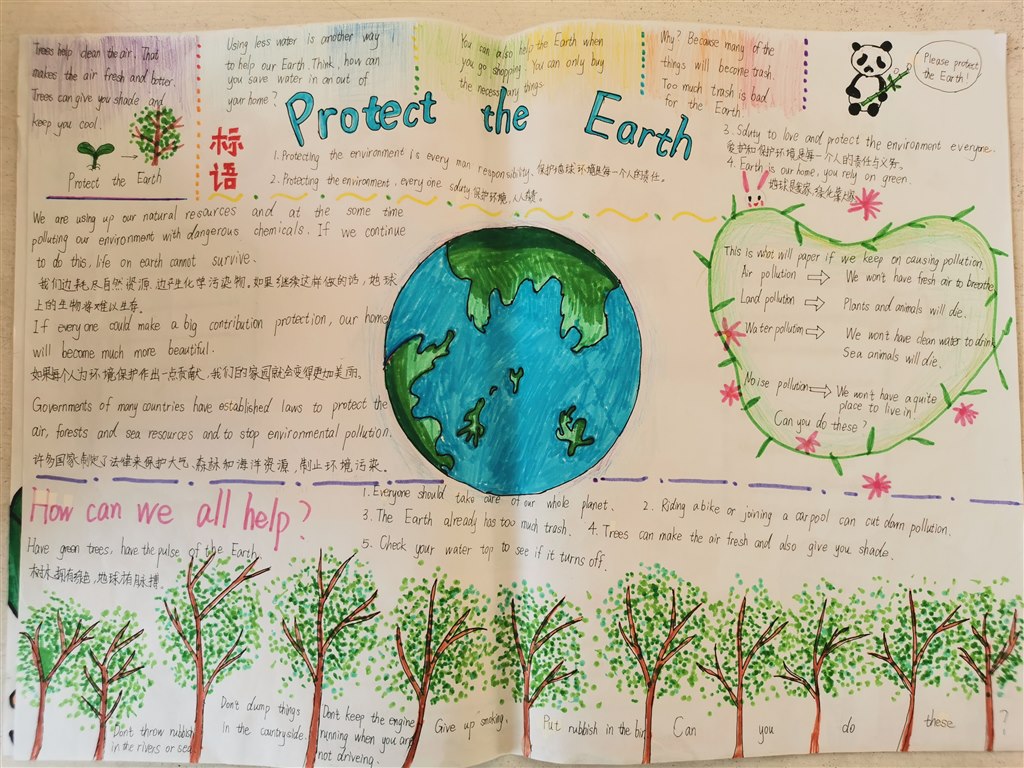 Trees help clean the air. That
makes the air fresh and better.
Trees can give you shade and
keep you cool.
Protect the Earth
Using less water is another way
to help our Earth. Think, how can
you save water in an out of
your home?
You can also help the Earth when
you go shopping. You can only buy
the necessary things
Why? Because many of the
things will become trash.
Too much trash is bad
for the Earth.
Please protect
the Earth!
Protect the Earth
标语
1. Protecting the environment is every man responsibility. 保护地球环境是每一个人的责任。
2. Protecting the environment, every one sduty 保护环境,人人有责。
3. Sduty to love and protect the environment everyone.
爱护和保护环境是每一个人的责任与义务。
4. Earth is our home, you rely on green.
地球是我家,绿化靠大家
We are using up our natural resources and at the some time
polluting our environment with dangerous chemicals. If we continue
to do this, life on earth cannot survive.
我们边耗尽自然资源,边产生化学污染物,如果继续这样做的话,地球
上的生物将难以生存。
If everyone could make a big contribution protection, our home
will become much more beautiful.
如果每个人为环境保护作出一点贡献,我们的家园就会变得更加美丽。
Governments of many countries have established laws to protect the
air, forests and sea resources and to stop environmental pollution.
许多国家制定了法律来保护大气、森林和海洋资源,制止环境污染。
This is what will paper if we keep on causing pollution.
Air pollution ⇨ We won't have fresh air to breathe
Land pollution ⇨ Plants and animals will die.
Water pollution ⇨ We won't have clean water to drink
Sea animals will die.
Noise pollution ⇨ We won't have a quite
place to live in!
Can you do these?
How can we all help?
Have green trees, have the pulse of the Earth.
树木拥有绿色,地球才有脉搏
1. Everyone should take care of our whole planet.
2. Riding a bike or joining a carpool can cut down pollution.
3. The Earth already has too much trash.
4. Trees can make the air fresh and also give you shade.
5. Check your water top to see if it turns off.
Don't throw rubbish
in the rivers or sea
Don't dump things
in the countryside.
Don't keep the engine
running when you are
not driveing.
Give up smoking.
Put rubbish in the bin.
Can you do these ?